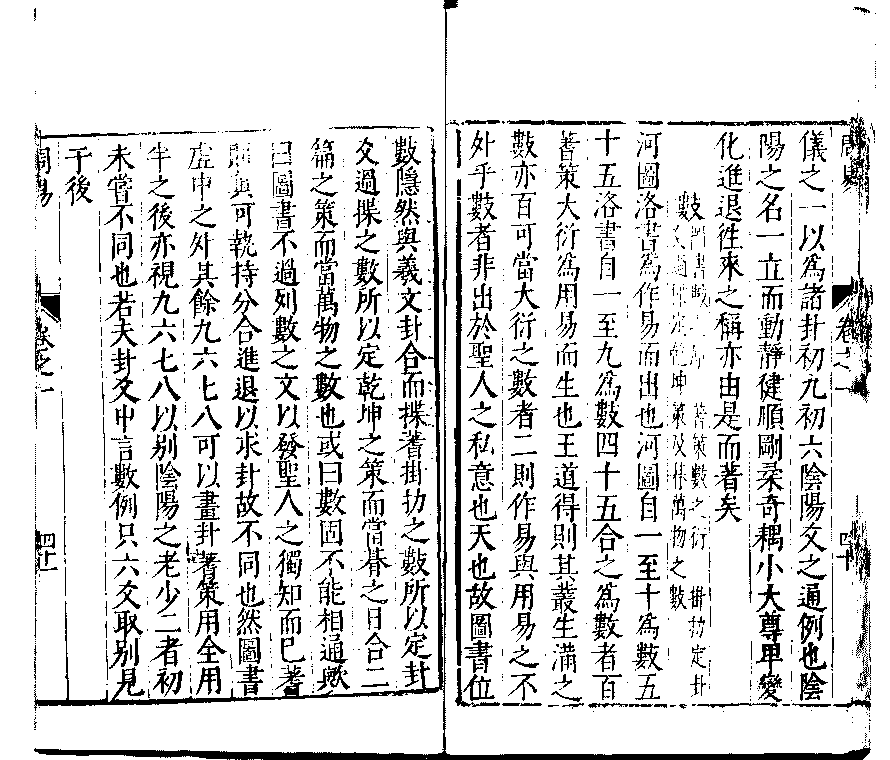 儀之一以為諸卦初九初六陰陽爻之通例也陰
陽之名一立而動靜健順剛柔奇耦小大尊卑變
化進退徃來之稱亦由是而著矣
數
蓍策數之衍
掛扐定卦
定乾坤策及探萬物之數
河圖洛書為作易而出也河圖自一至十為數五
十五洛書自一至九為數四十五合之為數者百
蓍策大衍為用易而生也王道得則其叢生滿之
數亦百可當大衍之數者二則作易與用易之不
外乎數者非出於聖人之私意也天也故圖書位
周易
卷之一
四十
數隱然與羲文卦合而揲蓍掛扐之數所以定卦
爻過揲之數所以定乾坤之策而當朞之日合二
篇之策而當萬物之數也或曰數固不能相通歟
曰圖書不過列數之文以發聖人之獨知而已蓍
則真可執持分合進退以求卦故不同也然圖書
虛中之外其餘九六七八可以畫卦蓍策用全用
半之後亦視九六七八以別陰陽之老少二者初
未嘗不同也若夫卦爻中言數例只六爻取別見
于後
周易
卷之一
四十一